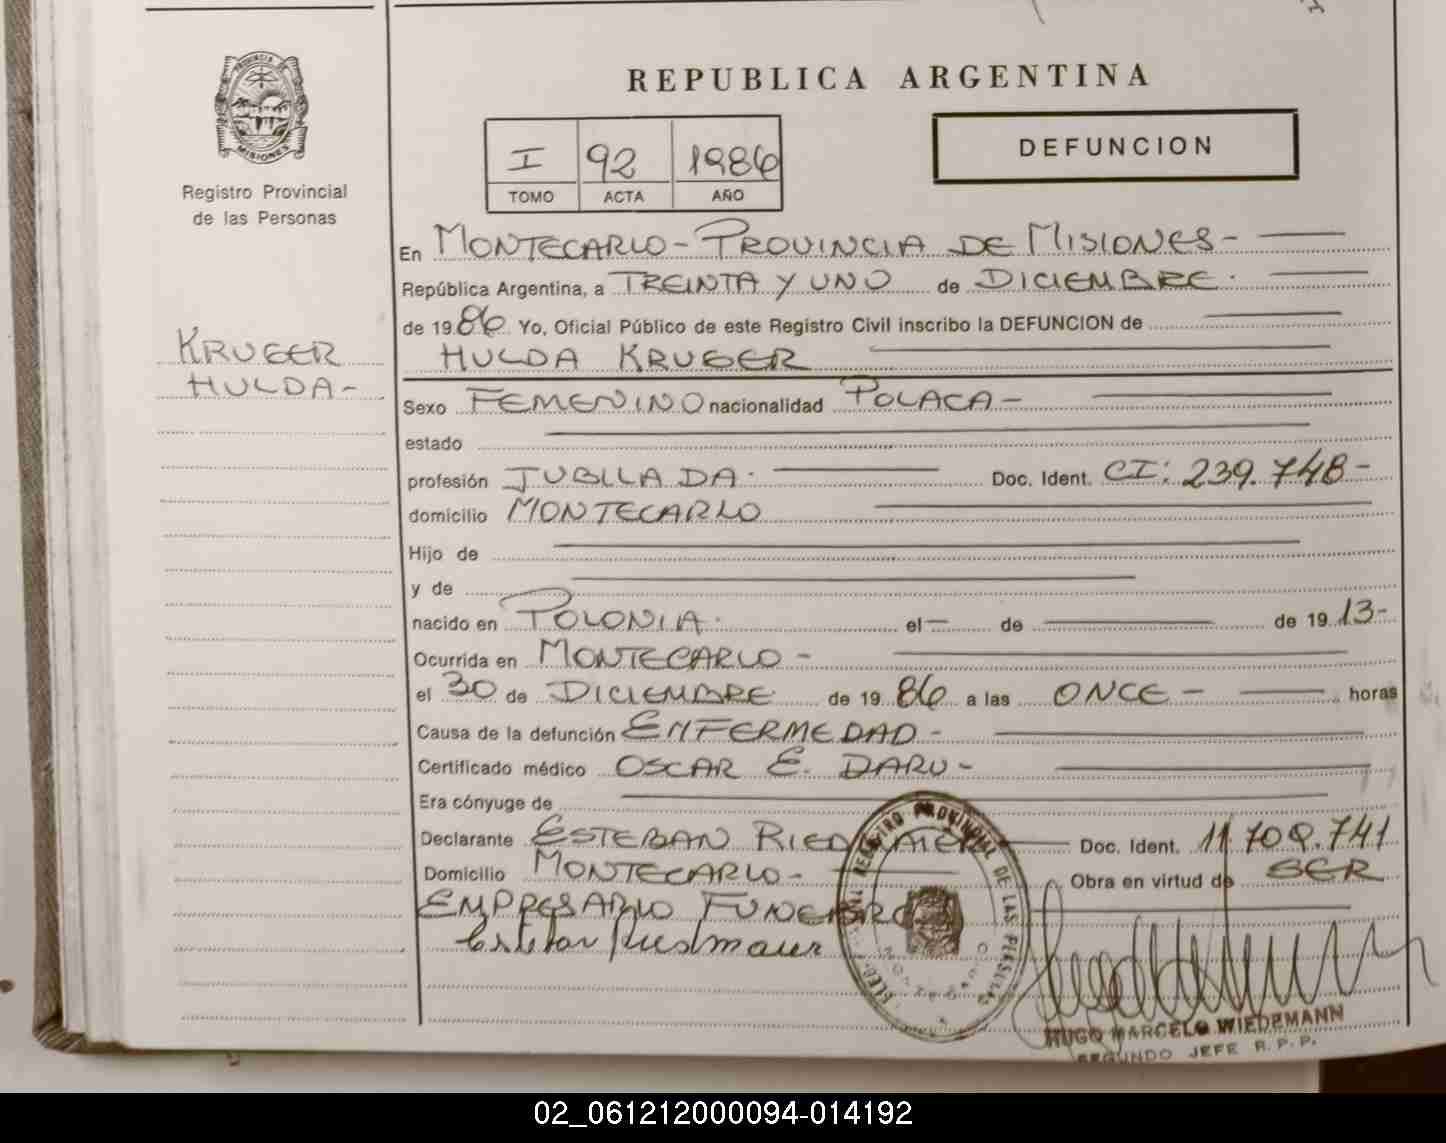 REPUBLICA ARGENTINA
PROVINCIA DE
MISIONES
Registro Provincial
de las Personas
I 92 1986
TOMO ACTA AÑO
DEFUNCION
KRUGER
HULDA-
En MONTECARLO- PROVINCIA DE MISIONES-
República Argentina, a TREINTA Y UNO de DICIEMBRE.
de 1986 Yo, Oficial Público de este Registro Civil inscribo la DEFUNCION de
HULDA KRUGER
Sexo FEMENINO nacionalidad POLACA-
estado
profesión JUBLLADA. Doc. Ident. CI: 239.748-
domicilio MONTECARLO
Hijo de
y de
nacido en POLONIA. el — de de 1913-
Ocurrida en MONTECARLO-
el 30 de DICIEMBRE de 1986 a las ONCE- horas
Causa de la defunción ENFERMEDAD-
Certificado médico OSCAR E. DARU-
Era cónyuge de
Declarante ESTEBAN RIEDMAIER Doc. Ident. 11.709.741
Domicilio MONTECARLO- Obra en virtud de SER
EMPRESARIO FUNEBRE
Esteban Riedmaier
REGISTRO PROVINCIAL DE LAS PERSONAS
MONTECARLO
HUGO MARCELO WIEDEMANN
SEGUNDO JEFE R.P.P.
02_061212000094-014192